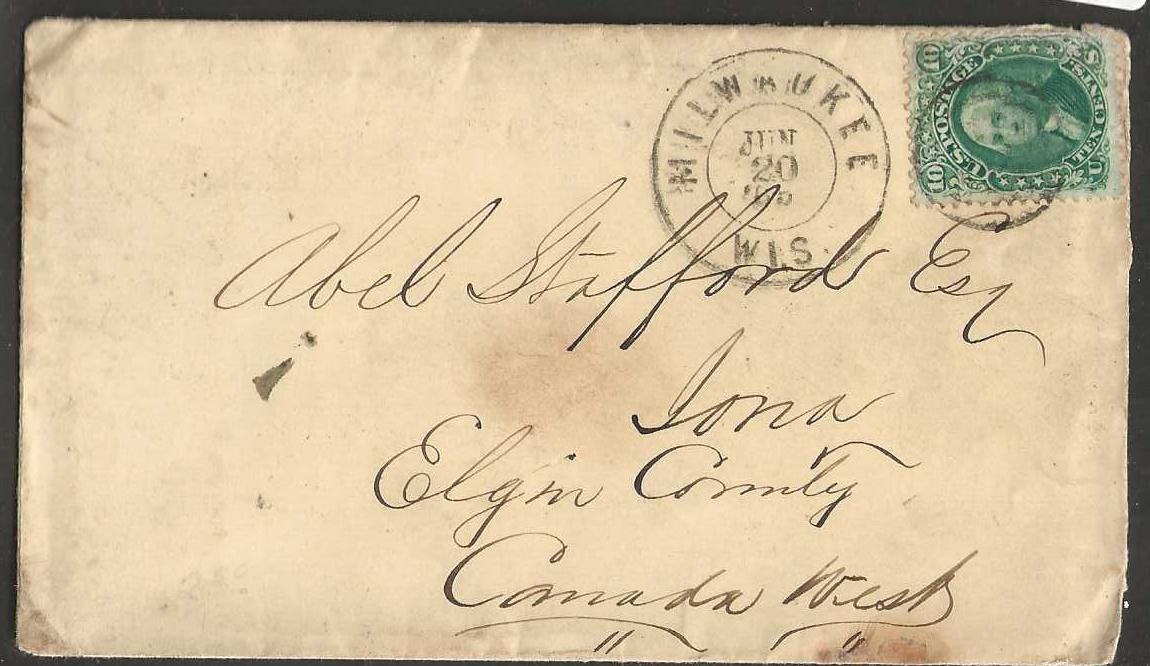 MILWAUKEE
JUN
20
WIS.
10 U.S. POSTAGE 10
TEN CENTS
U S
Abel Stafford Esq
Iona
Elgin County
Canada West